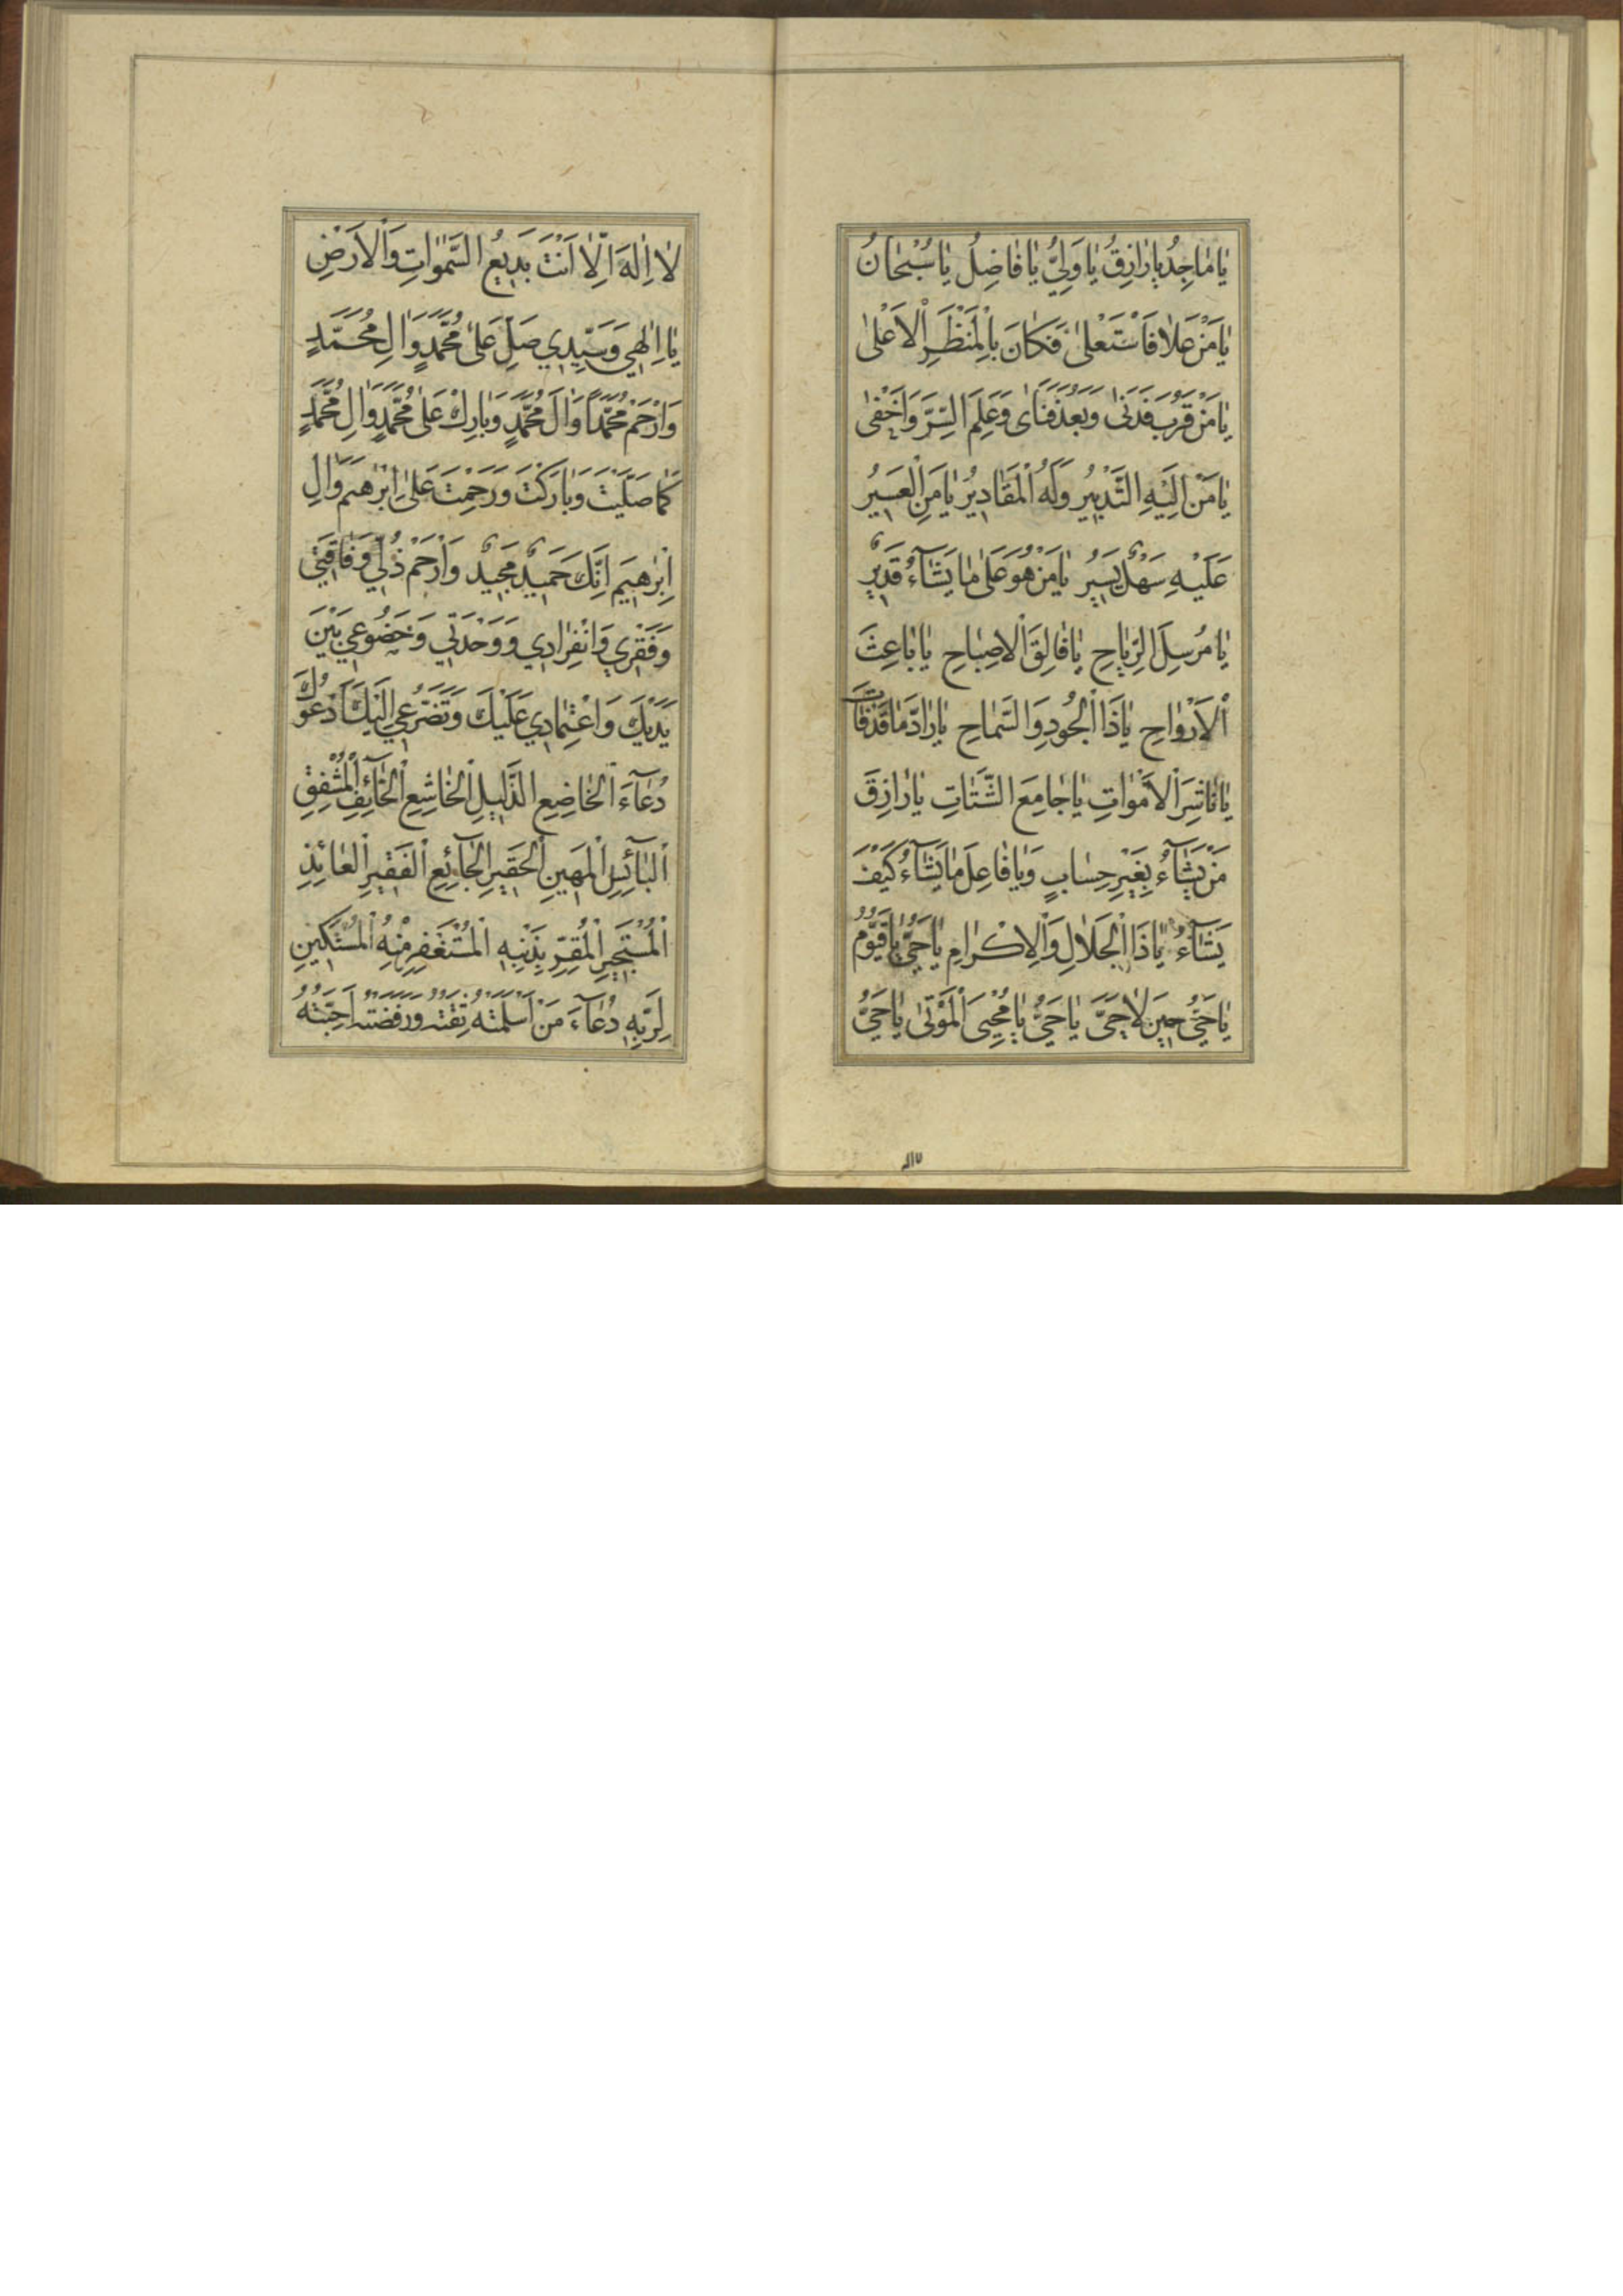 يٰا مٰاجِدُ يٰا رٰازِقُ يٰا وَلِيُّ يٰا فٰاضِلُ يٰا سُبْحٰانُ
يٰا مَنْ عَلٰا فَاسْتَعْلىٰ فَكٰانَ بِالْمَنْظَرِ الْاَعْلىٰ
يٰا مَنْ قَرُبَ فَدَنىٰ وَبَعُدَ فَنَاٰى وَعَلِمَ السِّرَّ وَاَخْفىٰ
يٰا مَنْ اِلَيْهِ التَّدْبِيرُ وَلَهُ الْمَقَادِيرُ يٰا مَنِ الْعَسِيرُ
عَلَيْهِ سَهْلٌ يَسِيرٌ يٰا مَنْ هُوَ عَلىٰ مٰا يَشَآءُ قَدِيرٌ
يٰا مُرْسِلَ الرِّيٰاحِ يٰا فٰالِقَ الْاِصْبٰاحِ يٰا بٰاعِثَ
الْاَرْوٰاحِ يٰا ذَا الْجُودِ وَالسَّمٰاحِ يٰا رٰادَّ مٰا قَدْ فٰاتَ
يٰا نٰاشِرَ الْاَمْوٰاتِ يٰا جٰامِعَ الشَّتٰاتِ يٰا رٰازِقَ
مَنْ يَشٰآءُ بِغَيْرِ حِسٰابٍ وَيٰا فٰاعِلَ مٰا يَشٰآءُ كَيْفَ
يَشٰآءُ يٰا ذَا الْجَلٰالِ وَالْاِكْرٰامِ يٰا حَيُّ يٰا قَيُّومُ
يٰا حَيُّ حِينَ لٰا حَيَّ يٰا حَيُّ يٰا مُحْيِىَ الْمَوْتىٰ يٰا حَيُّ
لٰا اِلٰهَ اِلّٰا اَنْتَ بَدِيعُ السَّمٰوٰاتِ وَالْاَرْضِ
يٰا اِلٰهِي وَسَيِّدِي صَلِّ عَلىٰ مُحَمَّدٍ وَاٰلِ مُحَمَّدٍ
وَارْحَمْ مُحَمَّداً وَاٰلَ مُحَمَّدٍ وَبٰارِكْ عَلىٰ مُحَمَّدٍ وَاٰلِ مُحَمَّدٍ
كَمٰا صَلَّيْتَ وَبٰارَكْتَ وَرَحِمْتَ عَلىٰ اِبْرٰهِيمَ وَاٰلِ
اِبْرٰهِيمَ اِنَّكَ حَمِيدٌ مَجِيدٌ وَارْحَمْ ذُلِّي وَفٰاقَتِي
وَفَقْرِي وَانْفِرٰادِي وَوَحْدَتِي وَخُضُوعِي بَيْنَ
يَدَيْكَ وَاعْتِمٰادِي عَلَيْكَ وَتَضَرُّعِي اِلَيْكَ اَدْعُوكَ
دُعٰآءَ الْخٰاضِعِ الذَّلِيلِ الْخٰاشِعِ الْخٰآئِفِ الْمُشْفِقِ
الْبٰآئِسِ الْمَهِينِ الْحَقِيرِ الْجٰآئِعِ الْفَقِيرِ الْعٰائِذِ
الْمُسْتَجِيرِ الْمُقِرِّ بِذَنْبِهِ الْمُسْتَغْفِرِ مِنْهُ الْمُسْتَكِينِ
لِرَبِّهِ دُعٰآءَ مَنْ اَسْلَمَتْهُ ثِقَتُهُ وَرَفَضَتْهُ اَحِبَّتُهُ